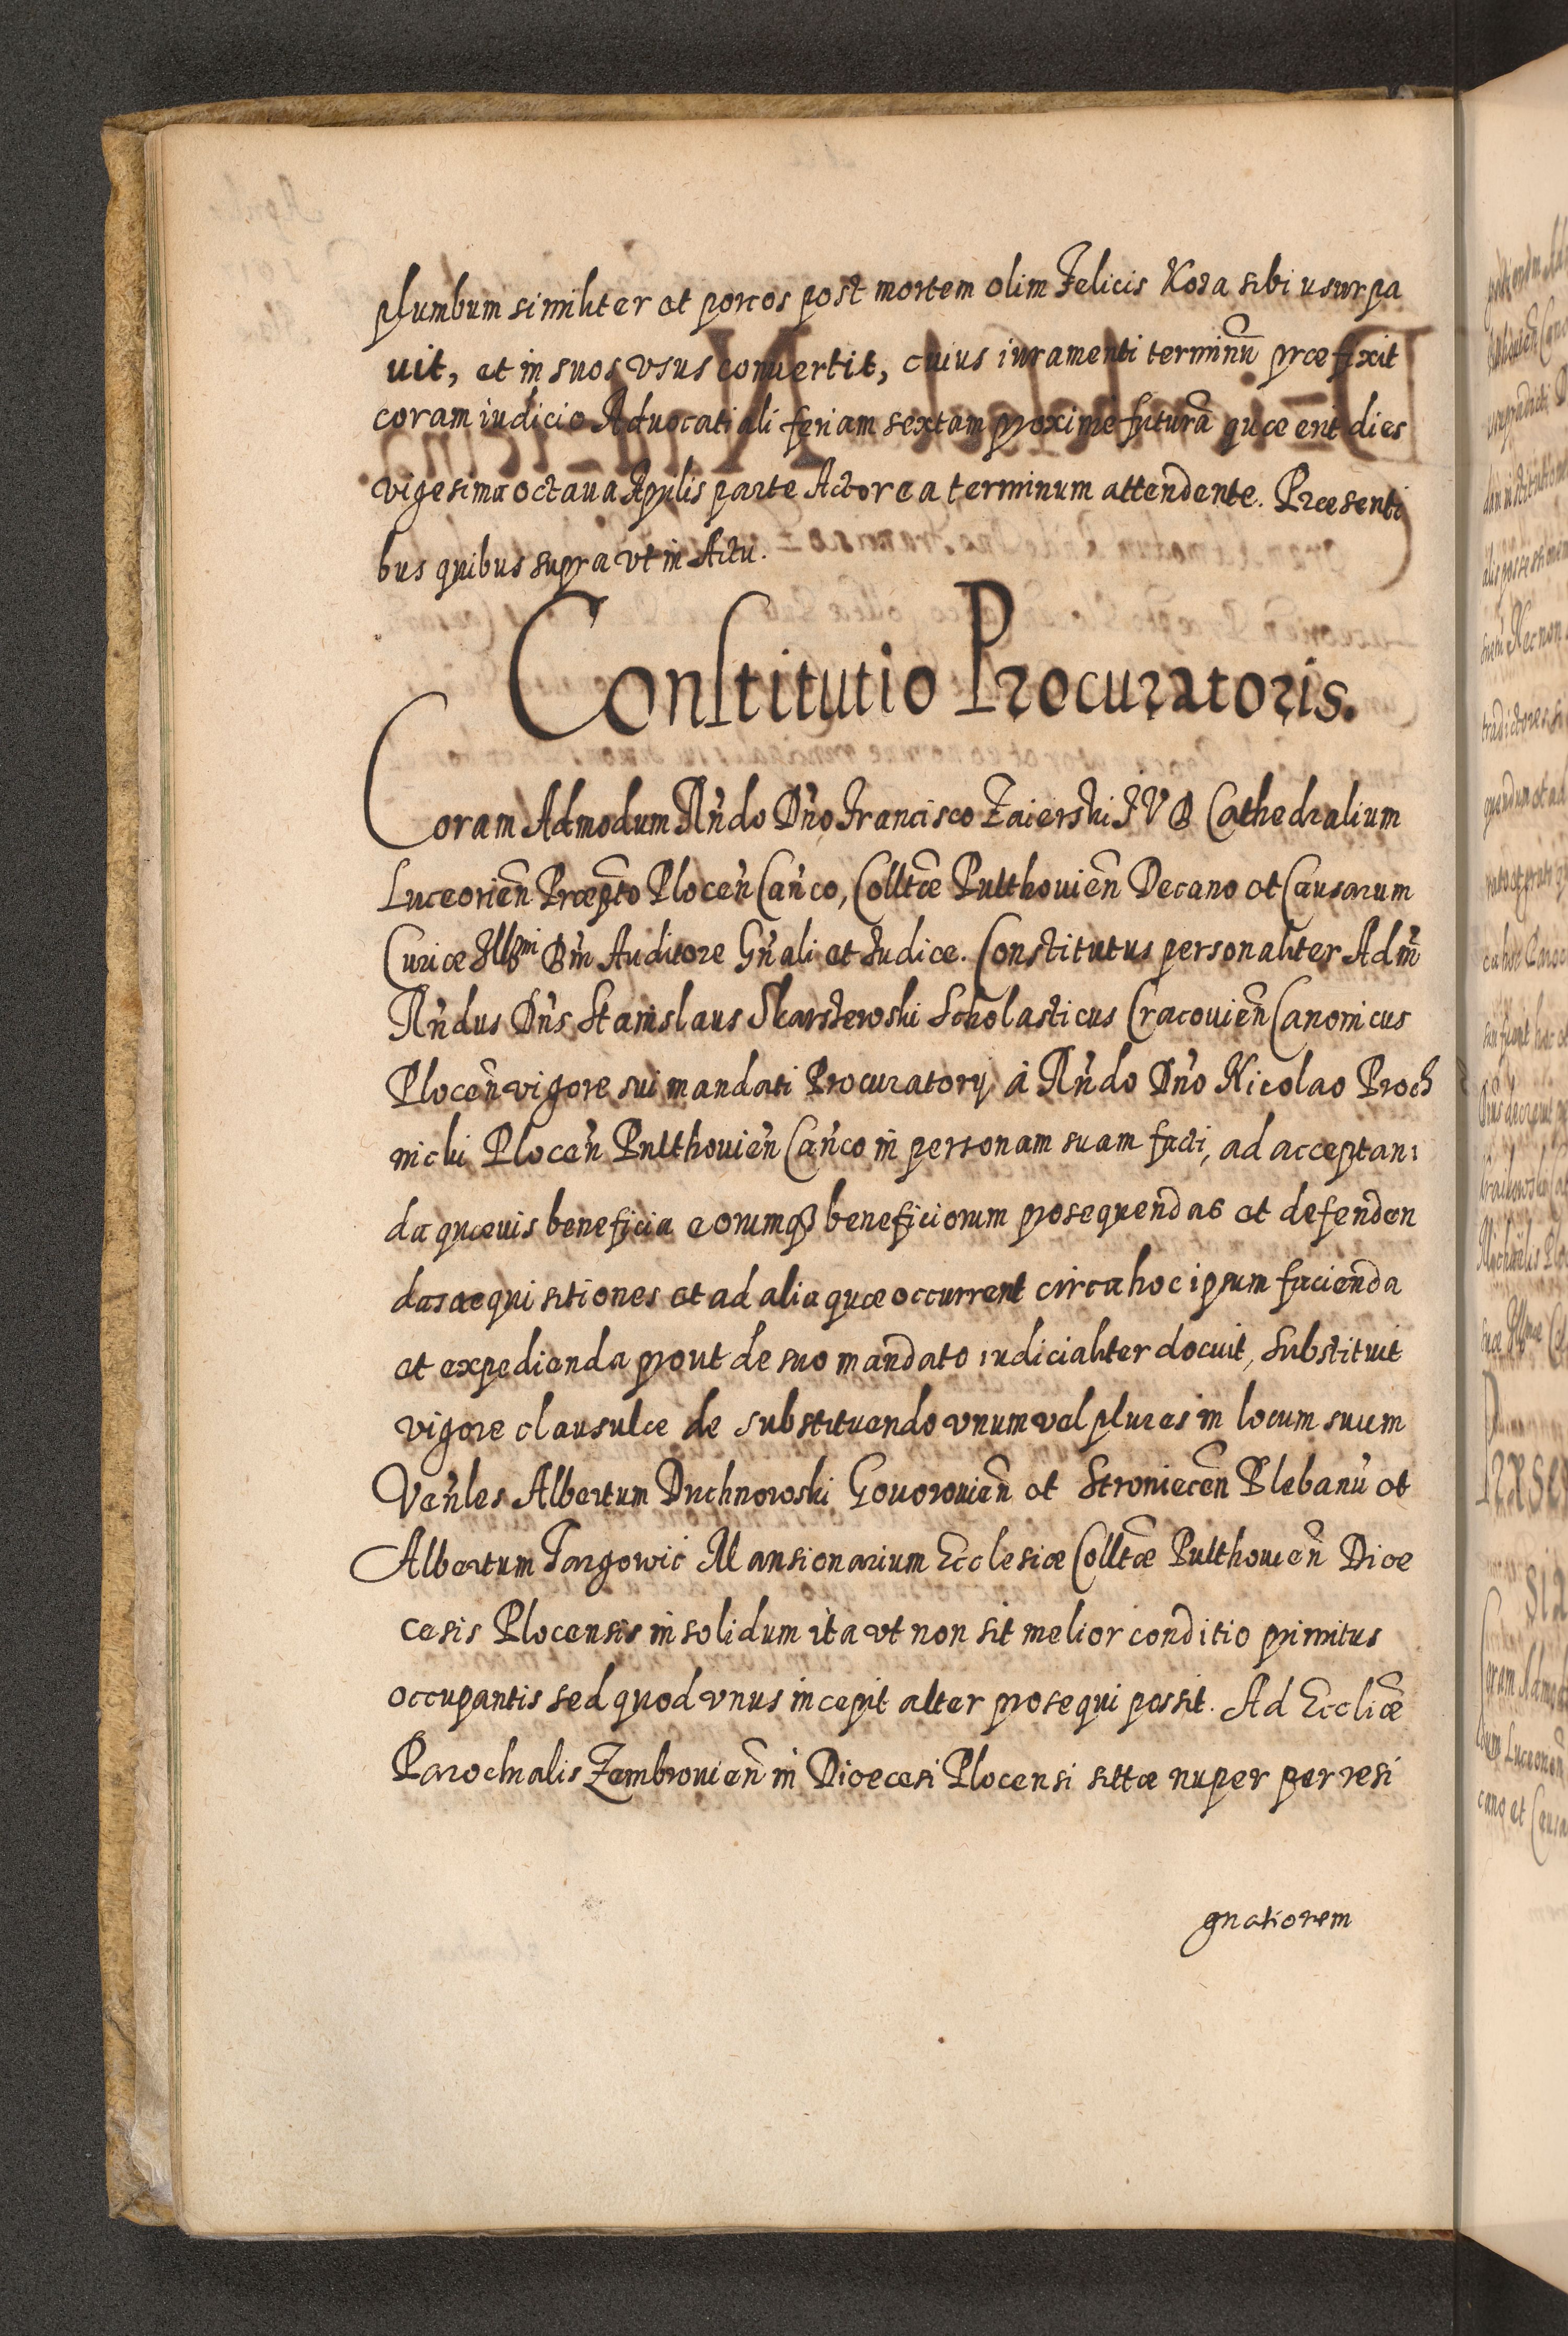 plumbum similiter et porcos post mortem olim Felicis Koza sibi usurpa
uit, et in suos vsus conuertit, cuius iuramenti terminũ præfixit
coram iudicio Aduocatiali feriam sextam proxime futurã quæ erit dies
vigesima octaua Aprilis parte Actorea terminum attendente. Præsenti
bus quibus supra vt in Actu.
Constitutio Procuratoris.
Coram Admodum Rñdo Dño Francisco Zaierski IVD Cathedralium
Luceorień Præpto Plocen̄ Cañco, Colltæ Pulthouien̄ Decano et Causarum
Curiæ Illmi Dni Auditore Gñali et Iudice. Constitutus personaliter Adm̃
Rñdus Dñs Stanislaus Skarszewski Scholasticus Cracouien̄ Canonicus
Plocen̄ vigore sui mandati Procuratorij à Rñdo Dño Nicolao Proch
nicki Plocen̄ Pulthouien̄ Cañco in personam suam facti, ad acceptan:
da quæuis beneficia eorumq3 beneficiorum prosequendas et defenden
das acquisitiones et ad alia quæ occurrent circa hoc ipsum facienda
et expedienda prout de suo mandato iudicialiter docuit, Substituit
vigore clausulæ de substituendo vnum vel plures in locum suum
Veñles Albertum Druchnowski Gouorouien̄ et Stroniecen̄ Plebanũ et
Albertum Targowic Mansionarium Ecclesiæ Colltæ Pulthouien̄ Dioe
cesis Plocensis in solidum ita vt non sit melior conditio primitus
occupantis sed quod vnus incepit alter prosequi possit. Ad Eccliæ
Parochialis Zembrouien̄ in Dioecesi Plocensi sittæ nuper per resi
gnatiorem